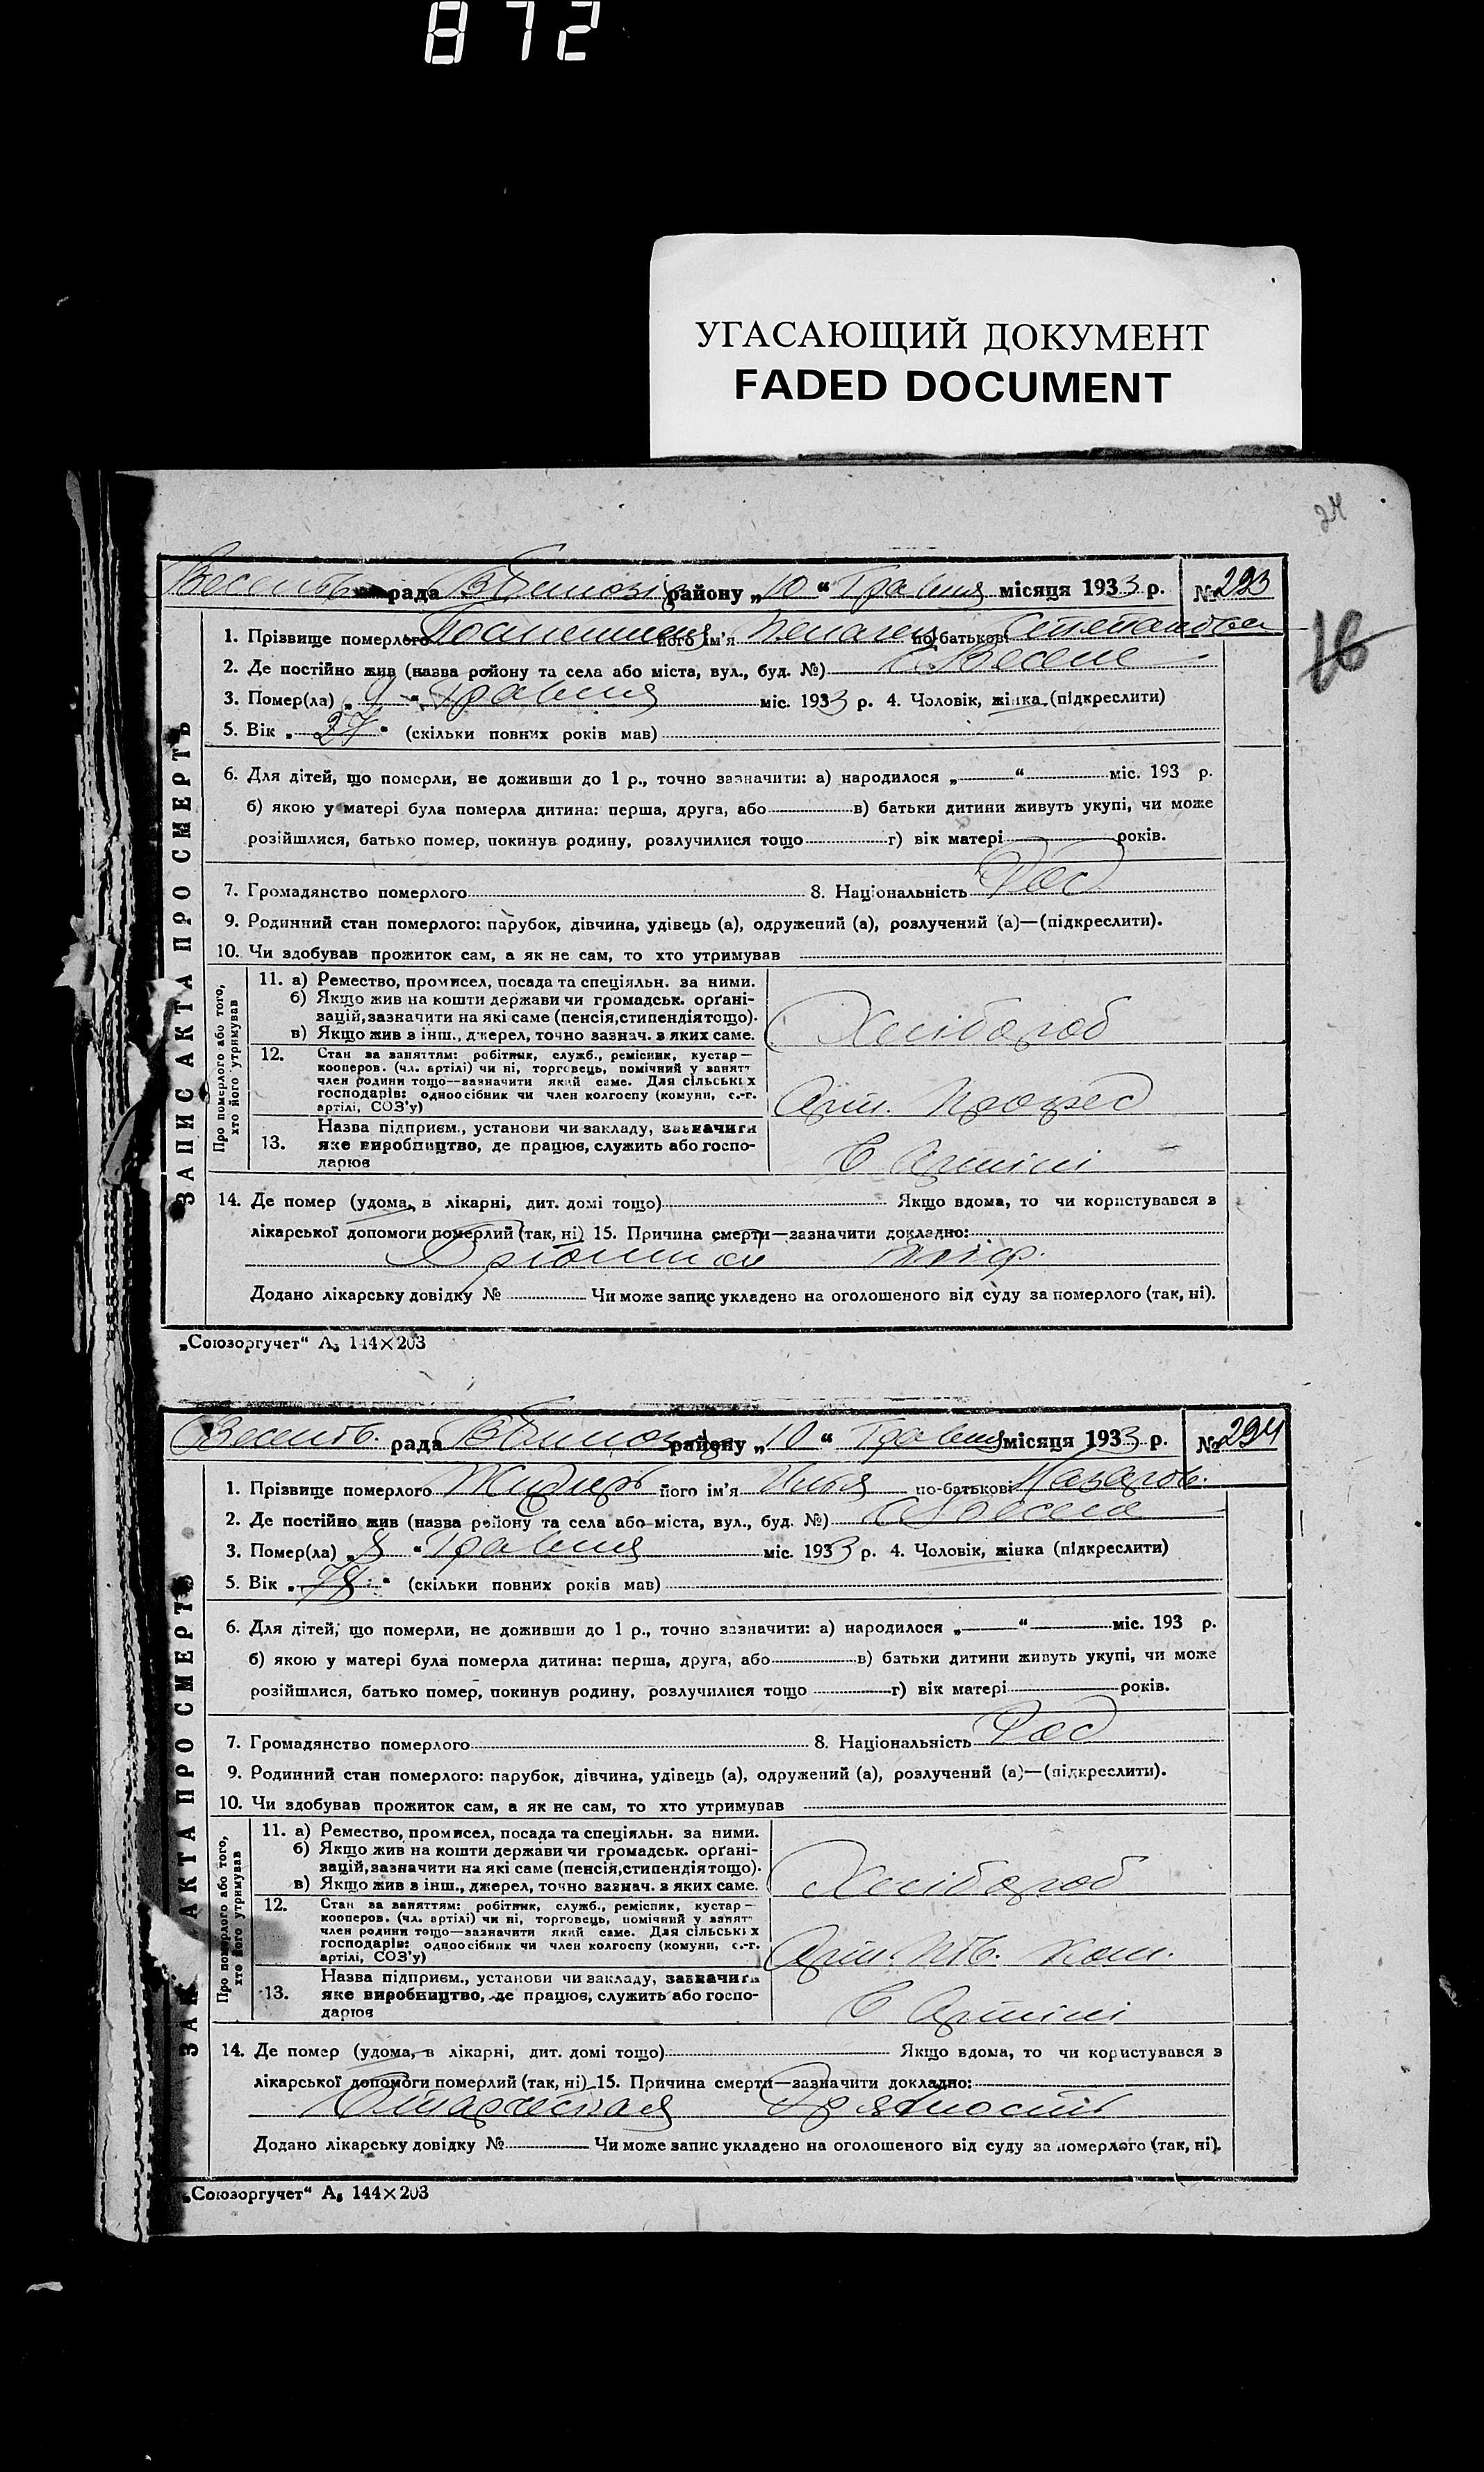 872
УГАСАЮЩИЙ ДОКУМЕНТ
FADED DOCUMENT
24
16
рада района „10“ Травня місяця 1933 р. № 293
1. Прізвище померлого його ім'я по-батькові Степановна
2. Де постійно жив (назва району та села або міста, вул., буд. №) с. Веселе
3. Помер(ла) „9“ Травня міс. 1933 р. 4. Чоловік, жінка (підкреслити)
5. Вік „37“ (скільки повних років мав)
6. Для дітей, що померли, не доживши до 1 р., точно зазначити: а) народилося „ “ міс. 193 р.
б) якою у матері була померла дитина: перша, друга, або в) батьки дитини живуть укупі, чи може
розійшлися, батько помер, покинув родину, розлучилися тощо г) вік матері років.
7. Громадянство померлого 8. Національність Рос
9. Родинний стан померлого: парубок, дівчина, удівець (а), одружений (а), розлучений (а)—(підкреслити).
10. Чи здобував прожиток сам, а як не сам, то хто утримував
ЗАПИС АКТА ПРО СМЕРТЬ
Про померлого або того, хто його утримував
11. а) Ремество, промисел, посада та спеціяльн. за ними.
б) Якщо жив на кошти держави чи громадськ. орґані-
зацій, зазначити на які саме (пенсія, стипендія тощо).
в) Якщо жив з інш., джерел, точно зазнач. з яких саме.
Хлібороб
12. Стан за заняттям: робітник, служб., ремісник, кустар—
кооперов. (чл. артілі) чи ні, торговець, помічний у занятт
член родини тощо—зазначити який саме. Для сільських
господарів: одноосібник чи член колгоспу (комуни, с.-г.
артілі, СОЗ'у)
Арт. Прогрес
13. Назва підприєм., установи чи закладу, зазначити
яке виробництво, де працює, служить або госпо-
дарює
В Артілі
14. Де помер (удома, в лікарні, дит. домі тощо) Якщо вдома, то чи користувався з
лікарської допомоги померлий (так, ні) 15. Причина смерти—зазначити докладно:
тиф.
Додано лікарську довідку № Чи може запис укладено на оголошеного від суду за померлого (так, ні).
„Союзоргучет“ А₅ 144×203
рада району „10“ Травня місяця 1933 р. № 294
1. Прізвище померлого його ім'я Илья по-батькові Назаров.
2. Де постійно жив (назва району та села або міста, вул., буд. №) с. Веселе
3. Помер(ла) „8“ Травня міс. 1933 р. 4. Чоловік, жінка (підкреслити)
5. Вік „78“ (скільки повних років мав)
6. Для дітей, що померли, не доживши до 1 р., точно зазначити: а) народилося „ “ міс. 193 р.
б) якою у матері була померла дитина: перша, друга, або в) батьки дитини живуть укупі, чи може
розійшлися, батько помер, покинув родину, розлучилися тощо г) вік матері років.
7. Громадянство померлого 8. Національність Рос
9. Родинний стан померлого: парубок, дівчина, удівець (а), одружений (а), розлучений (а)—(підкреслити).
10. Чи здобував прожиток сам, а як не сам, то хто утримував
АКТА ПРО СМЕРТЬ
Про померлого або того, хто його утримував
11. а) Ремество, промисел, посада та спеціяльн. за ними.
б) Якщо жив на кошти держави чи громадськ. орґані-
зацій, зазначити на які саме (пенсія, стипендія тощо).
в) Якщо жив з інш., джерел, точно зазнач. з яких саме.
Хлібороб
12. Стан за заняттям: робітник, служб., ремісник, кустар—
кооперов. (чл. артілі) чи ні, торговець, помічний у занятт
член родини тощо—зазначити який саме. Для сільських
господарів: одноосібник чи член колгоспу (комуни, с.-г.
артілі, СОЗ'у)
Арт.
13. Назва підприєм., установи чи закладу, зазначити
яке виробництво, де працює, служить або госпо-
дарює
В Артілі
14. Де помер (удома, в лікарні, дит. домі тощо) Якщо вдома, то чи користувався з
лікарської допомоги померлий (так, ні) 15. Причина смерти—зазначити докладно:
Старческая Дряхлость
Додано лікарську довідку № Чи може запис укладено на оголошеного від суду за померлого (так, ні).
„Союзоргучет“ А₅ 144×203